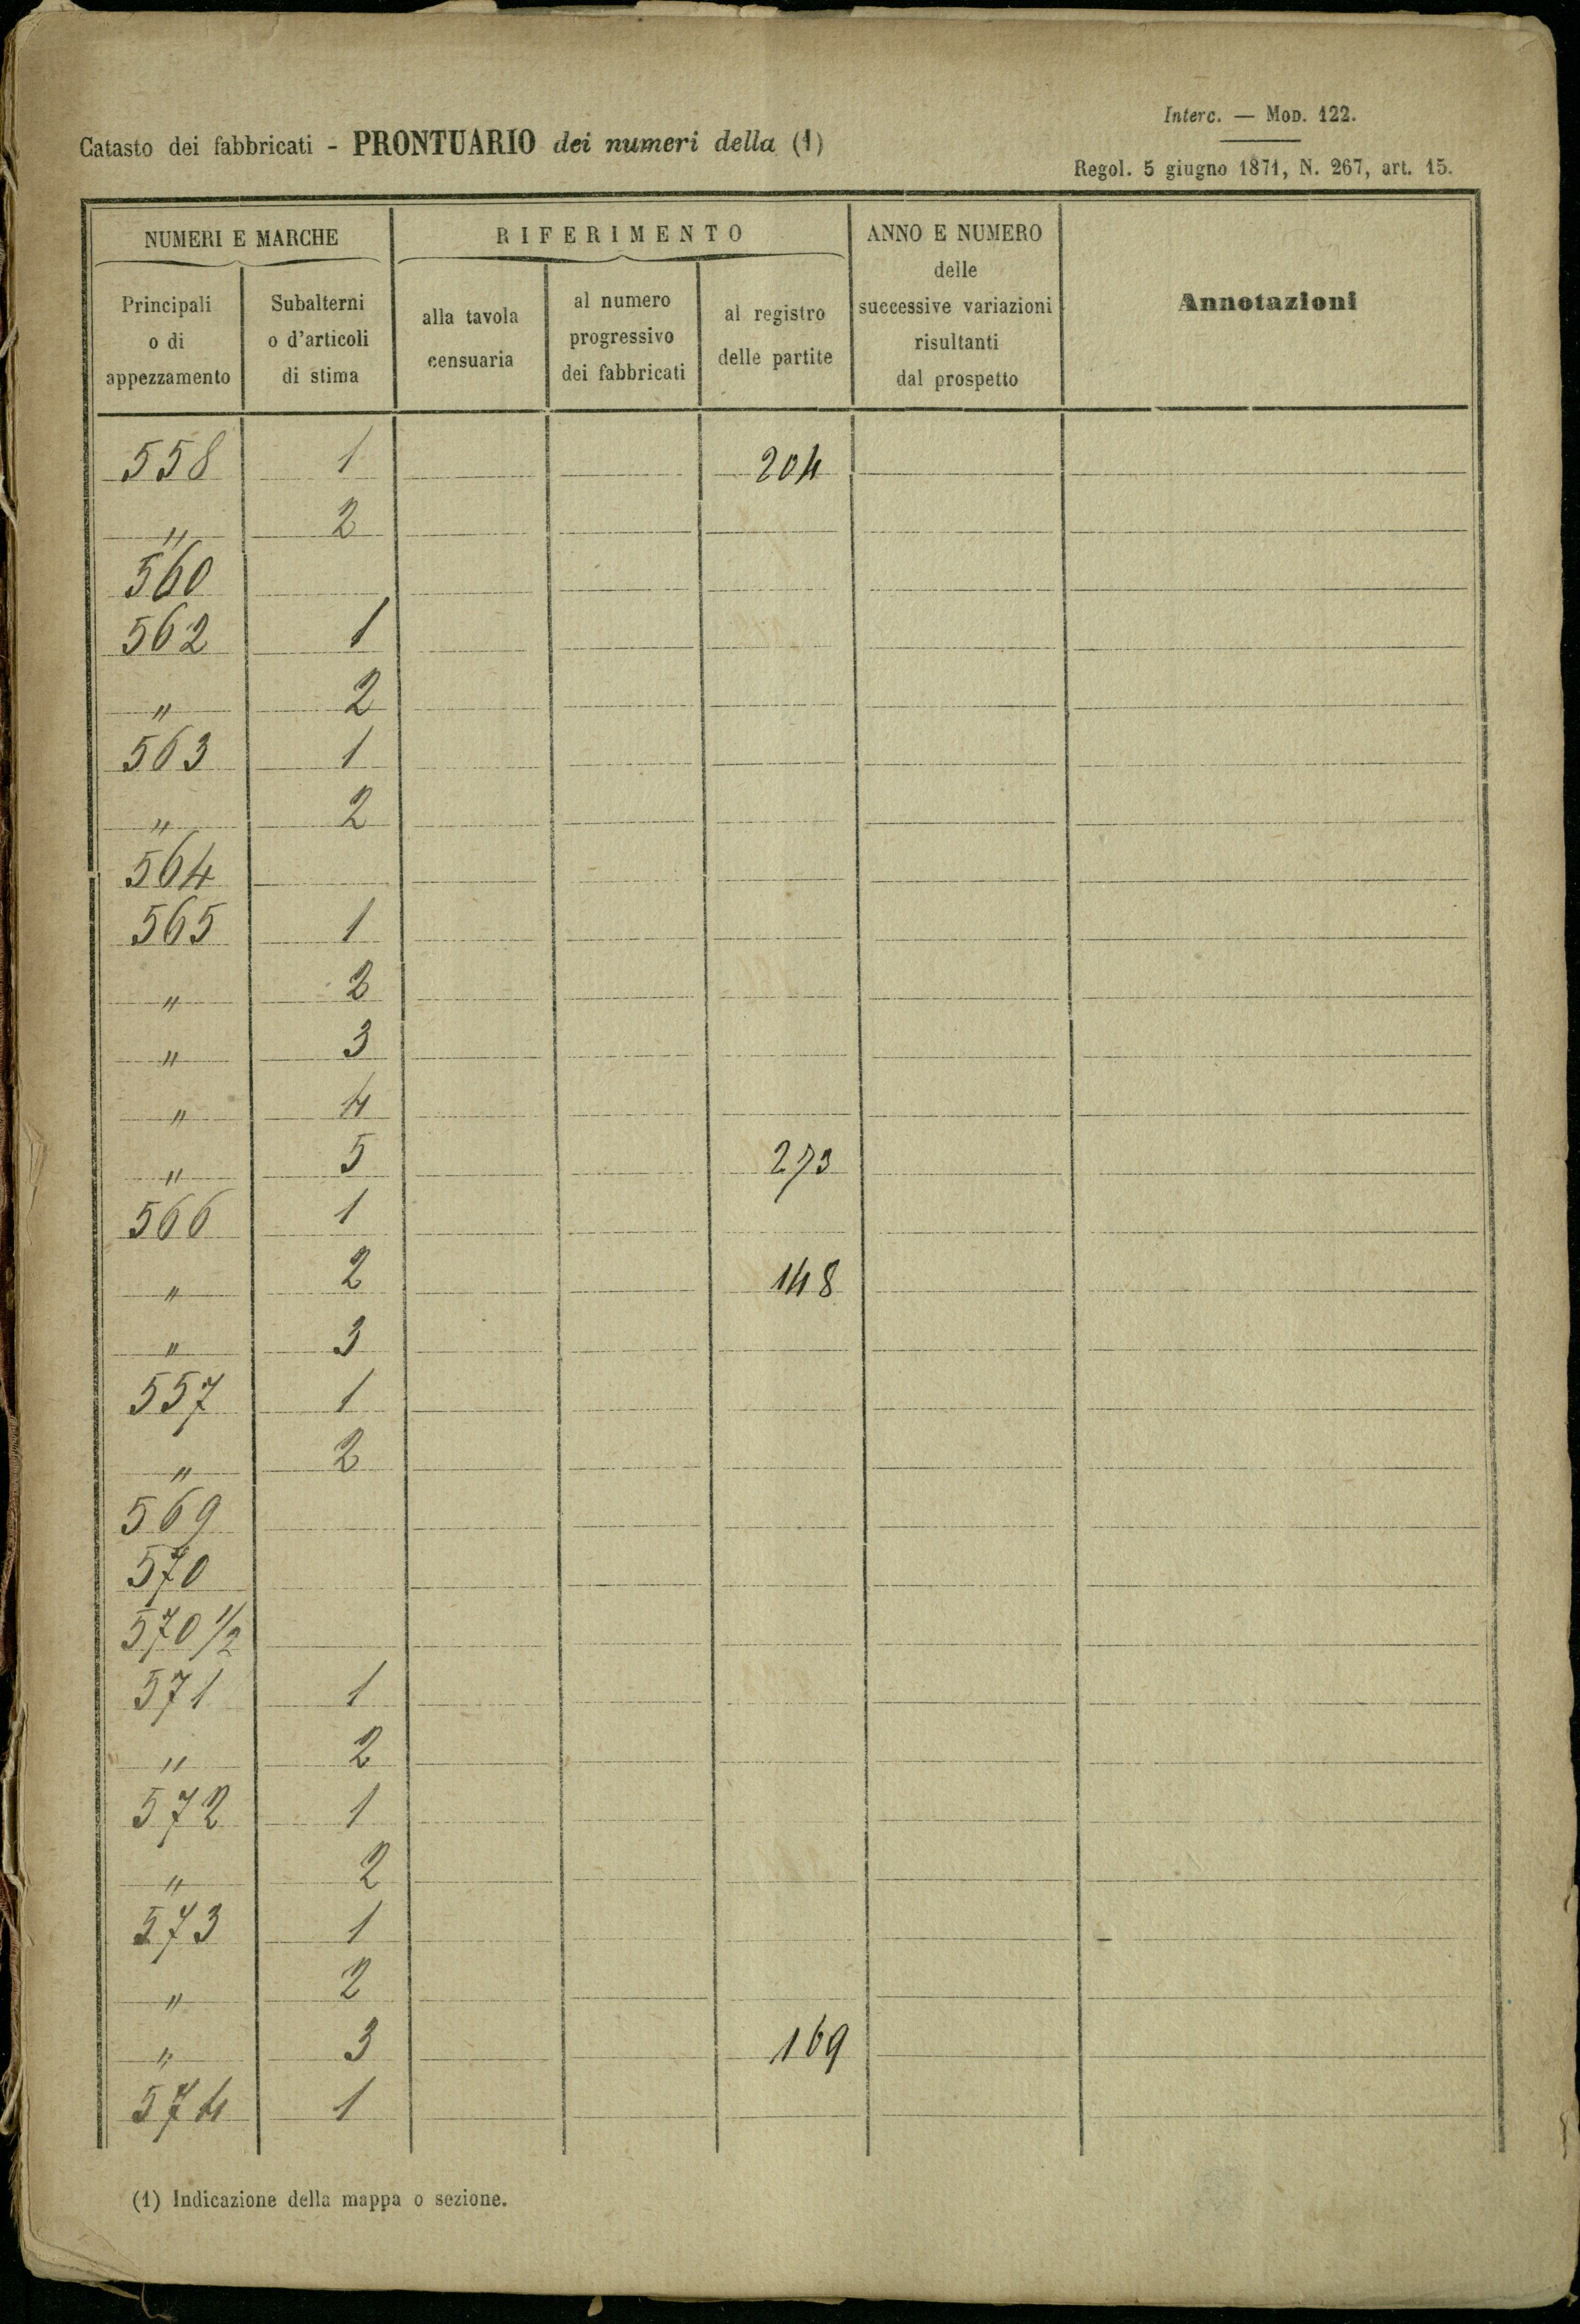 Interc. — Mod. 122.
Catasto dei fabbricati - PRONTUARIO dei numeri della (1)
Regol. 5 giugno 1871, N. 267, art. 15.
NUMERI E MARCHE
RIFERIMENTO
ANNO E NUMERO
delle
successive variazioni
risultanti
dal prospetto
Annotazioni
Principali
o di
appezzamento
Subalterni
o d'articoli
di stima
alla tavola
censuaria
al numero
progressivo
dei fabbricati
al registro
delle partite
558 1 204
" 2
560
562 1
" 2
563 1
" 2
564
565 1
" 2
" 3
" 4
" 5 273
566 1
" 2 148
" 3
557 1
" 2
569
570
570 1/2
571 1
" 2
572 1
" 2
573 1
" 2
" 3 169
574 1
(1) Indicazione della mappa o sezione.